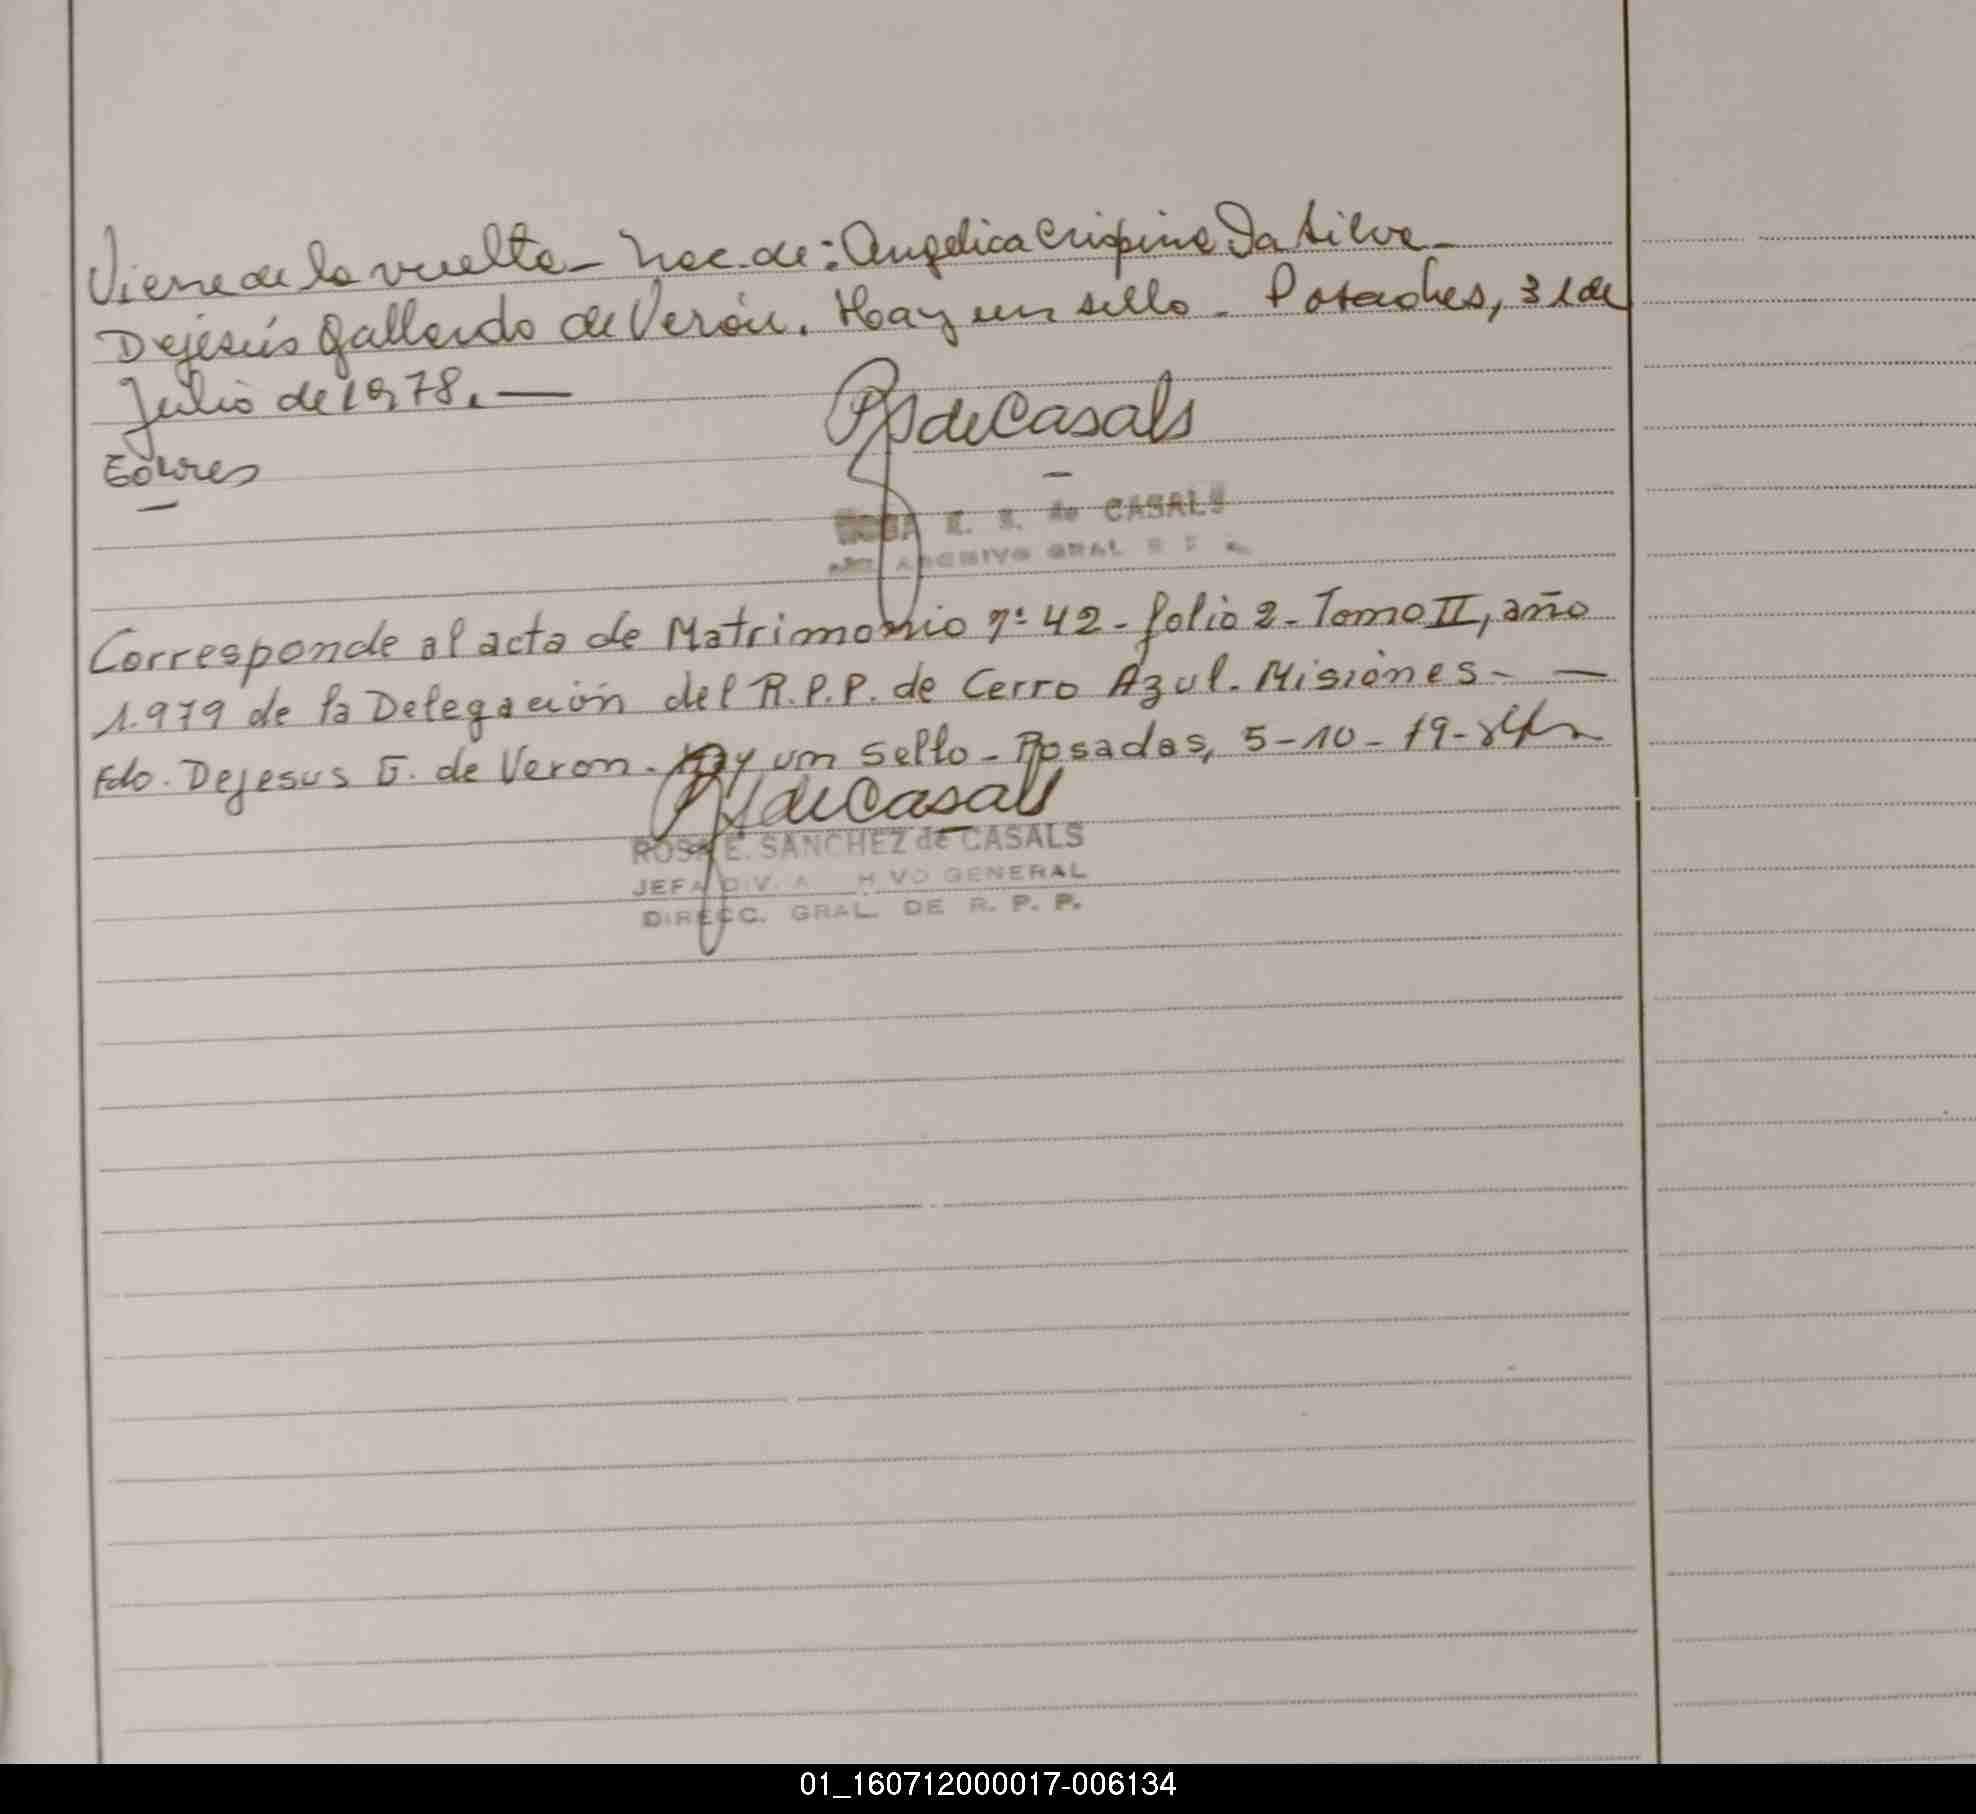 Viene de la vuelta - Nac. de: Angelica Crispina Da Silva -
Dejesús Gallardo de Verón. Hay un sello - Posadas, 31 de
Julio de 1978. —
RS de Casals
E. S. de CASALS
ARCHIVO GRAL
Corresponde al acta de Matrimonio nº 42 - folio 2 - Tomo II, año
1.979 de la Delegación del R.P.P. de Cerro Azul. Misiones - —
Fdo. Dejesus G. de Veron. Hay un sello - Posadas, 5-10-79-
RS de Casals
ROSA E. SANCHEZ de CASALS
JEFA DIV. A HVO GENERAL
DIRECC. GRAL. DE R. P. P.
01_160712000017-006134